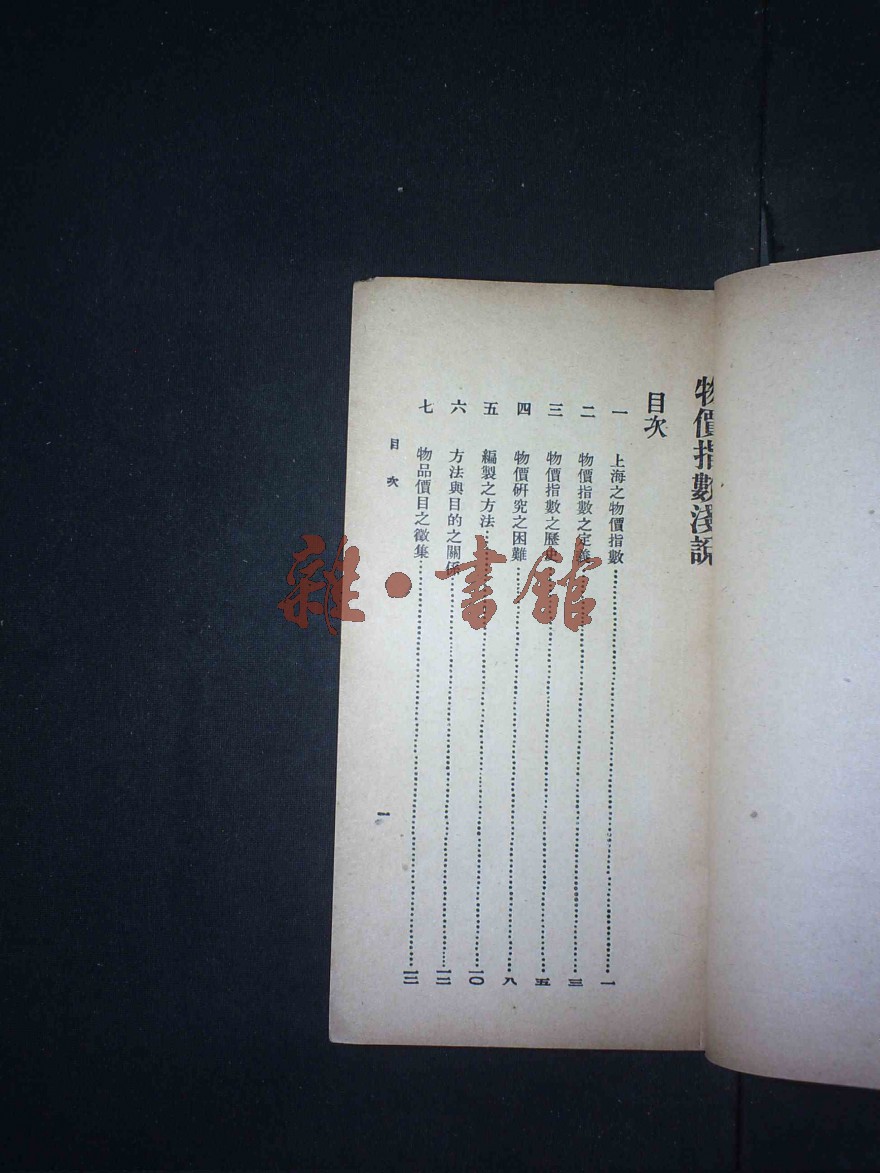 物價指數淺說
目次
一 上海之物價指數……一
二 物價指數之定義……三
三 物價指數之歷史……五
四 物價研究之困難……八
五 編製之方法……一〇
六 方法與目的之關係……一二
七 物品價目之徵集……一三
目次
一
雜·書館